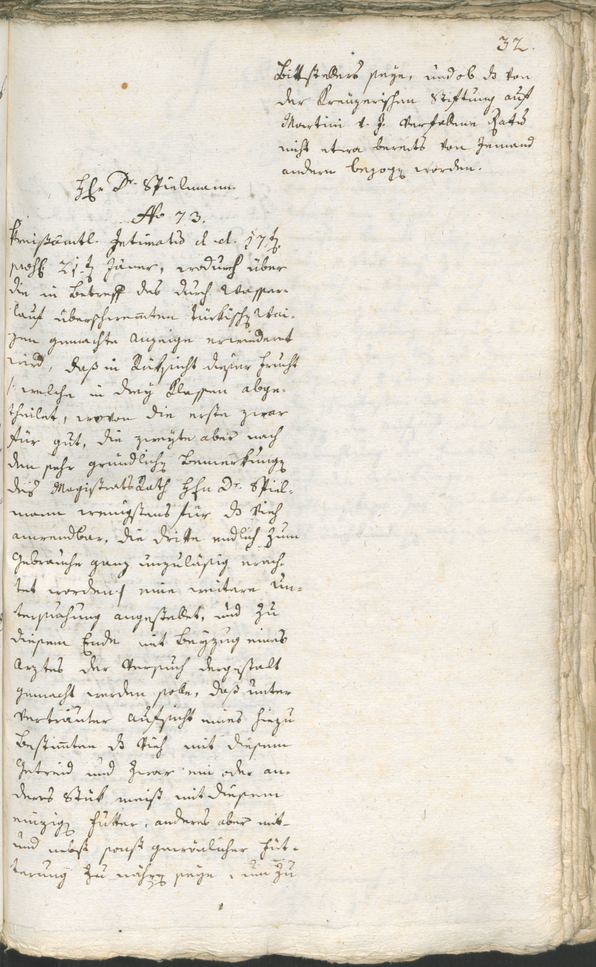 32.
Bittstellers seye, und ob ds von
der Kreuzerischen Stiftung auf
Martini v. J. verfallene Ratum
nicht etwa bereits von Jemand
andern bezogen worden.
Hhr Dr Spielmann
No 73.
Kreißämtl. Intimatio d. d. 17ten
21ten Jäner, wodurch über
die in Betreff des durch Wasser-
lauf überschwemmten Türkischen Wai-
zen gemachte Anzeige erwiedert
wird, daß in Rüksicht dieser Frucht
/: welche in drey Klassen abge-
theilet, wovon die erste zwar
für gut, die zweyte aber nach
den sehr gründlichen Bemerkungen
des Magistrats Rath Hhn Dr Spiel-
mann wenigstens für ds Vieh
anwendbar, die dritte endlich zum
Gebrauche ganz unzuläsig erach-
tet worden :/ eine weitere Un-
tersuchung angestellet, und zu
diesem Ende mit Beyzug eines
Arztes der Versuch dergestalt
gemacht werden solle, daß unter
vertrauter Aufsicht eines hiezu
bestimmten ds Vieh mit diesem
Getreid und zwar ein oder an-
ders Stük meist mit diesem
einzigen Futter, anderes aber mit-
und nebst sonst gewönlicher Füt-
terung zu nähren seye, um zu